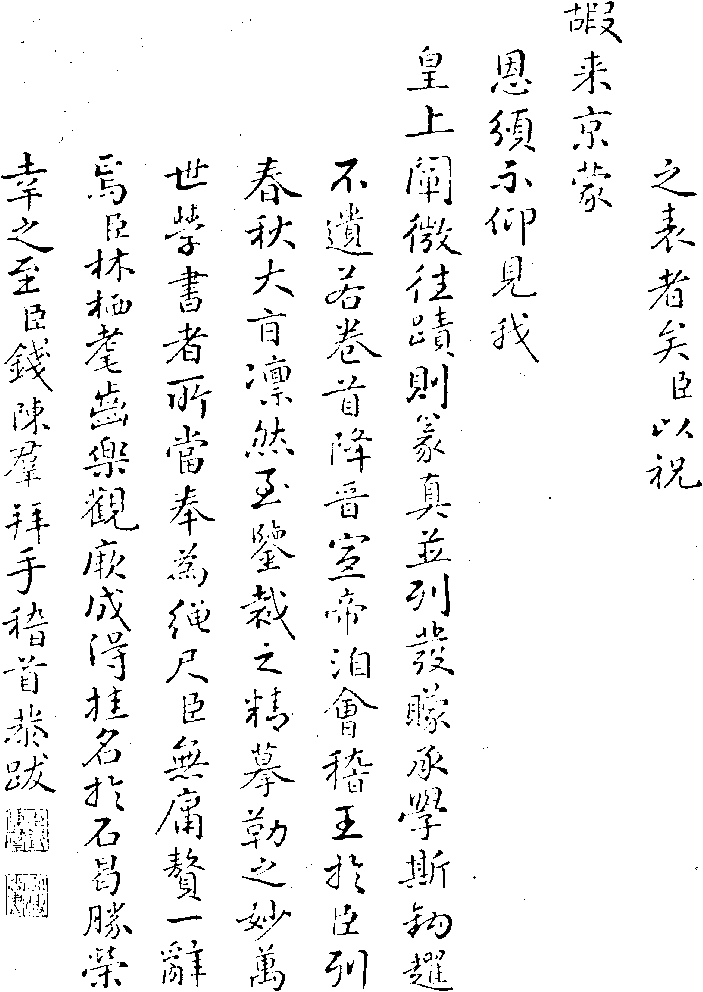 之表者矣臣以祝
嘏来京蒙
恩頒示仰見我
皇上闡微往蹟則篆真並列發矇承學斯鉤趯
不遺若卷首降晋宣帝洎會稽王於臣列
春秋大旨凛然至鑒裁之精摹勒之妙萬
世學書者所當奉為繩尺臣無庸贅一辭
焉臣林栖耄齒樂觀厥成得挂名於石曷勝榮
幸之至臣錢陳羣拜手稽首恭跋